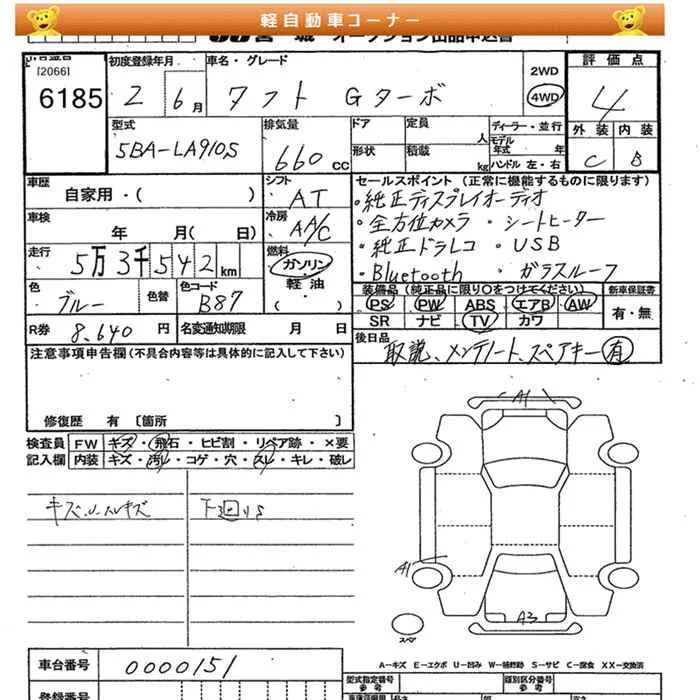 軽自動車コーナー
宮城 オークション出品申込書
[2066]
6185
初度登録年月
2 6月
車名・グレード
タフト Gターボ
2WD
4WD
評価点
4
外装 内装
C B
型式
5BA-LA910S
排気量
660cc
ドア
定員 人
ディーラー・並行
モデル年式 年
形状
積載 kg
ハンドル 左・右
車歴
自家用・( )
シフト
AT
車検
年 月( 日)
冷房
AA/C
走行
5万3千542km
燃料
ガソリン
軽油
( )
色
ブルー
色替
色コード
B87
R券 8,640円
名変通知期限 月 日
セールスポイント(正常に機能するものに限ります)
・純正ディスプレイオーディオ
・全方位カメラ ・シートヒーター
・純正ドラレコ ・USB
・Bluetooth ・ガラスルーフ
装備品(純正品に限り○をつけてください)
PS PW ABS エアB AW
SR ナビ TV カワ
新車保証書
有・無
後日品
取説、メンテノート、スペアキー有
注意事項申告欄(不具合内容等は具体的に記入して下さい)
修復歴 有〔箇所 〕
検査員記入欄
FW キズ・飛石・ヒビ割・リペア跡・×要
内装 キズ・汚れ・コゲ・穴・スレ・キレ・破レ
下廻りS
A1
A1
A3
スペア
A-キズ E-エクボ U-凹み W-補修跡 S-サビ C-腐食 XX-交換済
車台番号
0000151
登録番号
型式指定番号
参考
類別区分番号
参考